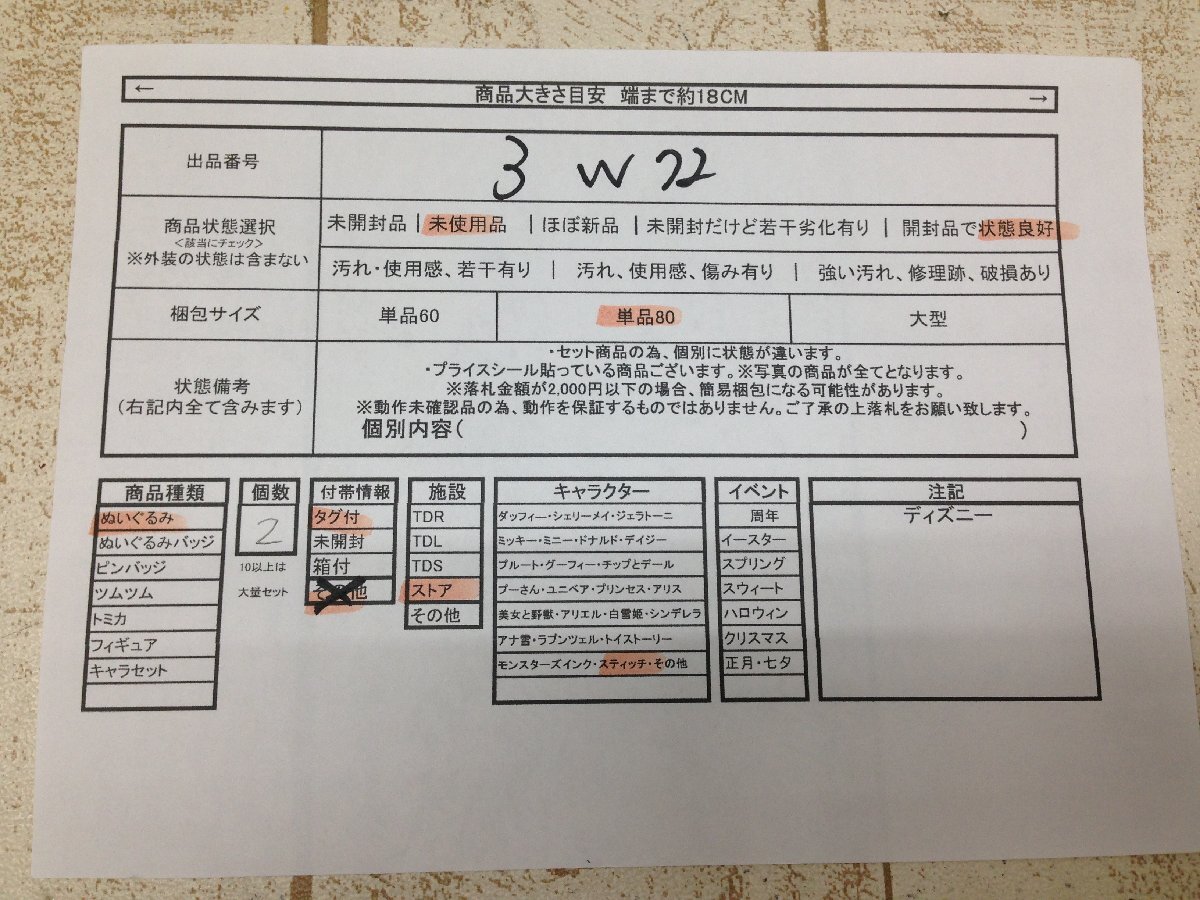 ← 商品大きさ目安 端まで約18CM →
出品番号 3 W 72
商品状態選択
<該当にチェック>
※外装の状態は含まない
未開封品 | 未使用品 | ほぼ新品 | 未開封だけど若干劣化有り | 開封品で状態良好
汚れ・使用感、若干有り | 汚れ、使用感、傷み有り | 強い汚れ、修理跡、破損あり
梱包サイズ 単品60 単品80 大型
状態備考
(右記内全て含みます)
・セット商品の為、個別に状態が違います。
・プライスシール貼っている商品ございます。※写真の商品が全てとなります。
※落札金額が2,000円以下の場合、簡易梱包になる可能性があります。
※動作未確認品の為、動作を保証するものではありません。ご了承の上落札をお願い致します。
個別内容( )
商品種類
ぬいぐるみ
ぬいぐるみバッジ
ピンバッジ
ツムツム
トミカ
フィギュア
キャラセット
個数
2
10以上は
大量セット
付帯情報
タグ付
未開封
箱付
その他
施設
TDR
TDL
TDS
ストア
その他
キャラクター
ダッフィー・シェリーメイ・ジェラトーニ
ミッキー・ミニー・ドナルド・デイジー
プルート・グーフィー・チップとデール
プーさん・ユニベア・プリンセス・アリス
美女と野獣・アリエル・白雪姫・シンデレラ
アナ雪・ラプンツェル・トイストーリー
モンスターズインク・スティッチ・その他
イベント
周年
イースター
スプリング
スウィート
ハロウィン
クリスマス
正月・七夕
注記
ディズニー